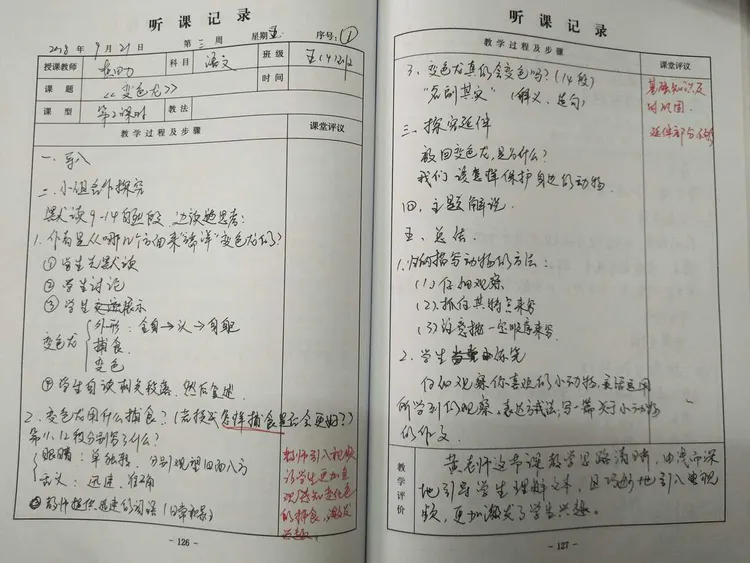 听课记录
2018年9月21日 第三周 星期五 序号:①
授课教师 科目 语文 班级
课题 《变色龙》 时间
课型 第2课时 教法
教学过程及步骤 课堂评议
一、导入
二、小组合作探究
默读9-14自然段,边读边思考:
1.作者是从哪几个方面来“变色龙的?
①学生先默读
②学生讨论
③学生交流展示
变色龙
外形:全身→头→身躯
捕食
变色
④学生自读相关段落,然后复述
2.变色龙用什么捕食?(怎样捕食会更好?)
第11、12段分别写了什么?
眼睛:单独转,分别观望四面八方
舌头:迅速、准确
教师引入视频
让学生更加直
的捕食,激发
兴趣。
- 126 -
听课记录
教学过程及步骤 课堂评议
3.变色龙真的会变色吗?(14段)
“名副其实”(释义、造句)
基础知识及
时巩固
三、探究延伸
延伸部分
放回变色龙,是为什么?
我们该怎样保护身边的动物
四、主题解说。
五、总结
1.归纳描写动物的方法:
(1).仔细观察
(2).抓住其特点来写
(3).注意按一定顺序来写
2.学生练笔
仔细观察你喜欢的小动物,灵活运用
所学到的观察、表达方法,写一篇关于小动物
的作文。
教学评价
黄老师这节课教学思路清晰,由浅而深
地引导学生理解文本,且巧妙地引入电视
频,更加激发了学生兴趣。
- 127 -